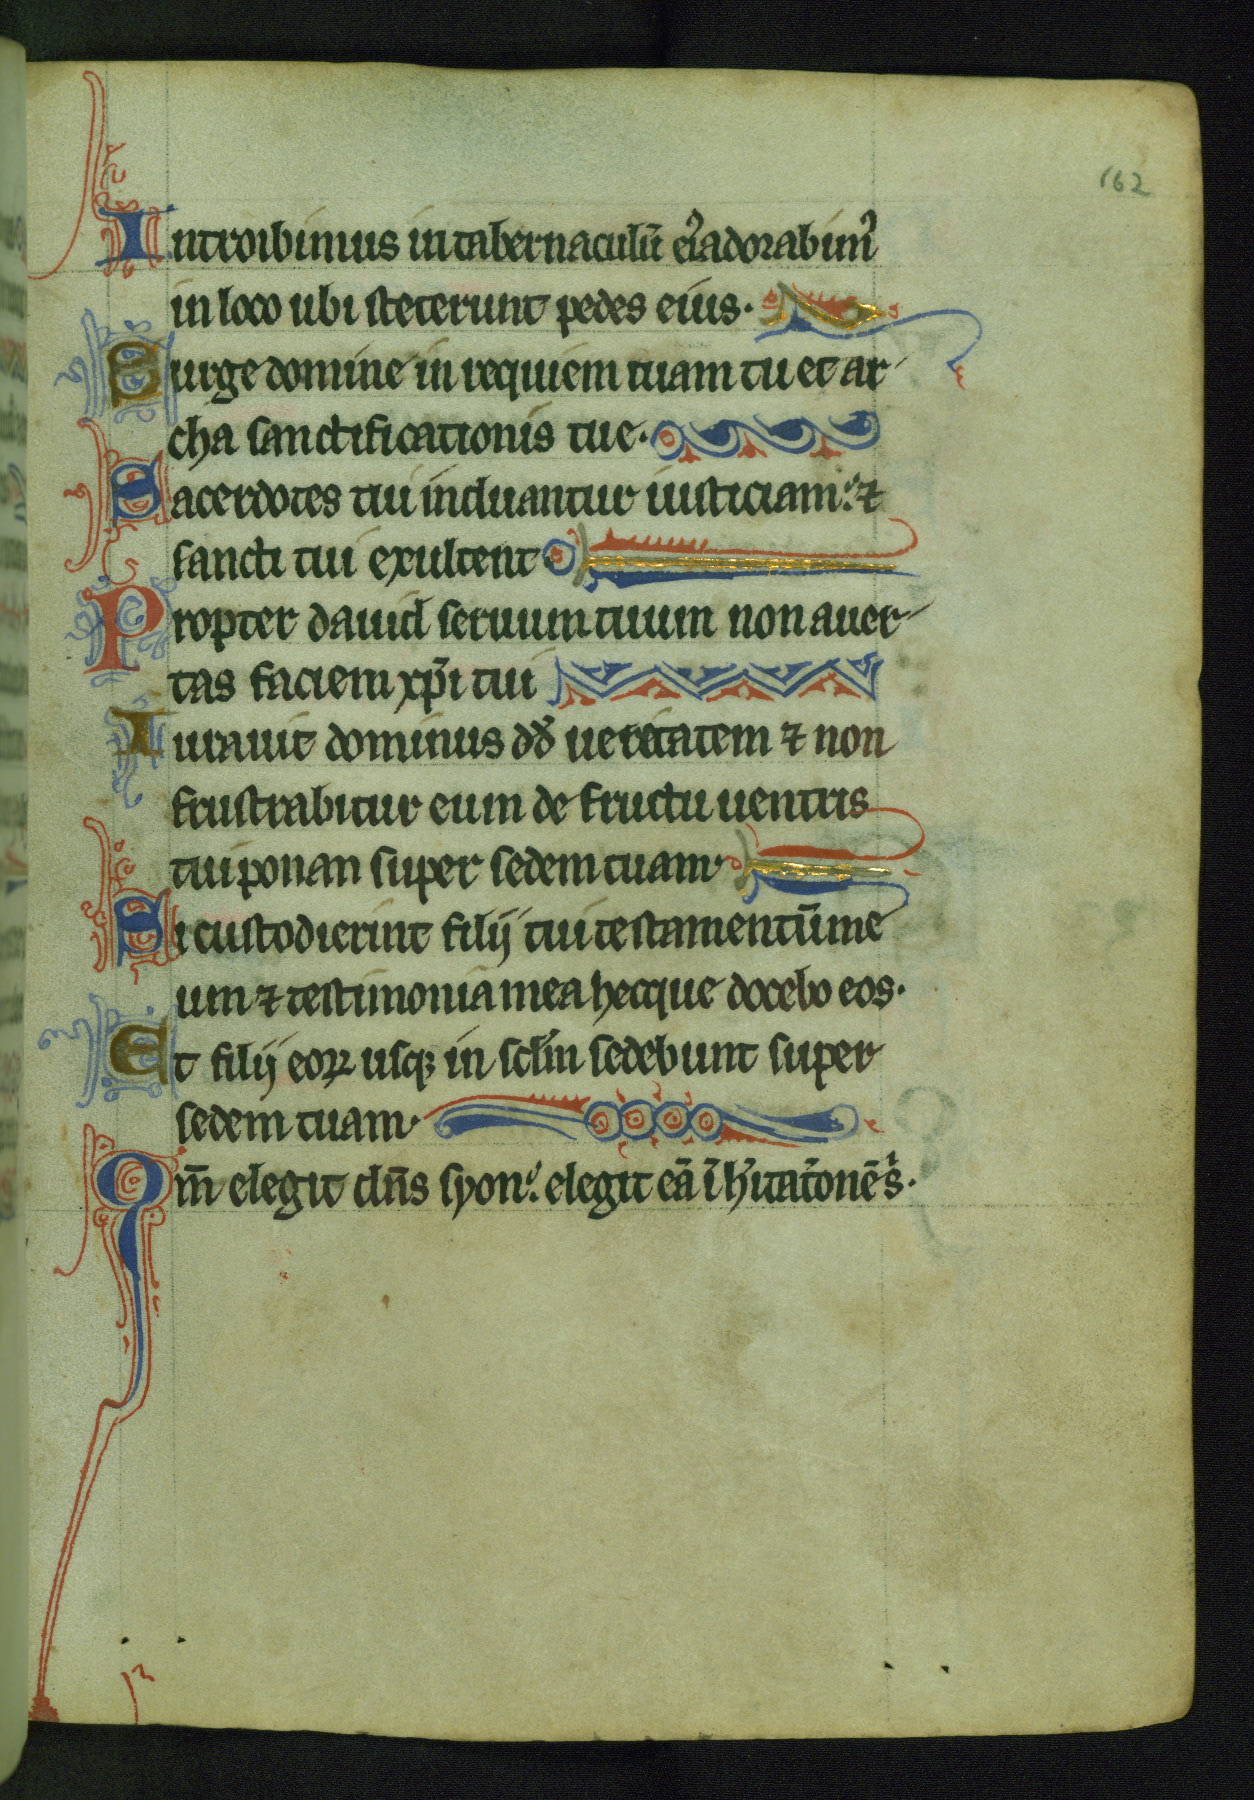 162
Introibimus in tabernaculū eiꝰ adorabimꝰ
in loco ubi steterunt pedes eius.
Surge domine in requiem tuam tu et ar
cha sanctificationis tue.
Sacerdotes tui induantur iusticiam: ⁊
sancti tui exultent
Propter dauid seruum tuum non auer
tas faciem xp̄i tui
Iurauit dominus dd̄ ueritatem ⁊ non
frustrabitur eum de fructu uentris
tui ponan super sedem tuam.
Si custodierint filij tui testamentū me
um ⁊ testimonia mea hecque docebo eos.
Et filij eoꝝ usqꝫ in sclm̄ sedebunt super
sedem tuam.
Qm̄ elegit dn̄s syon: elegit eā ī h̓itat̓onē s̓.